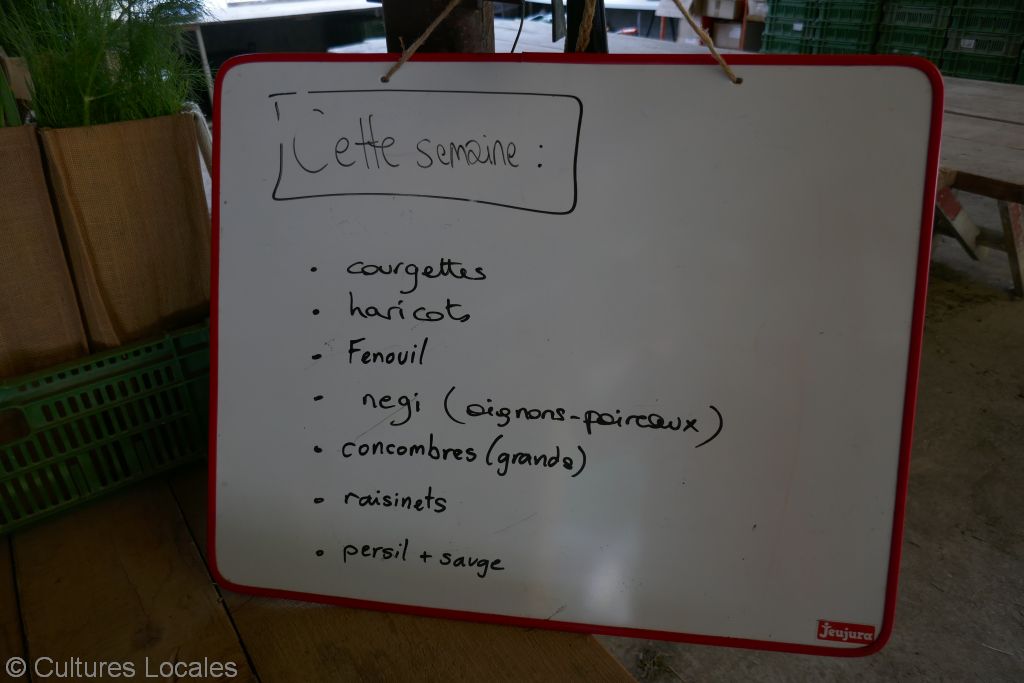 Cette semaine :
• courgettes
• haricots
• Fenouil
• negi (oignons-poireaux)
• concombres (grands)
• raisinets
• persil + sauge
Jeujura
© Cultures Locales